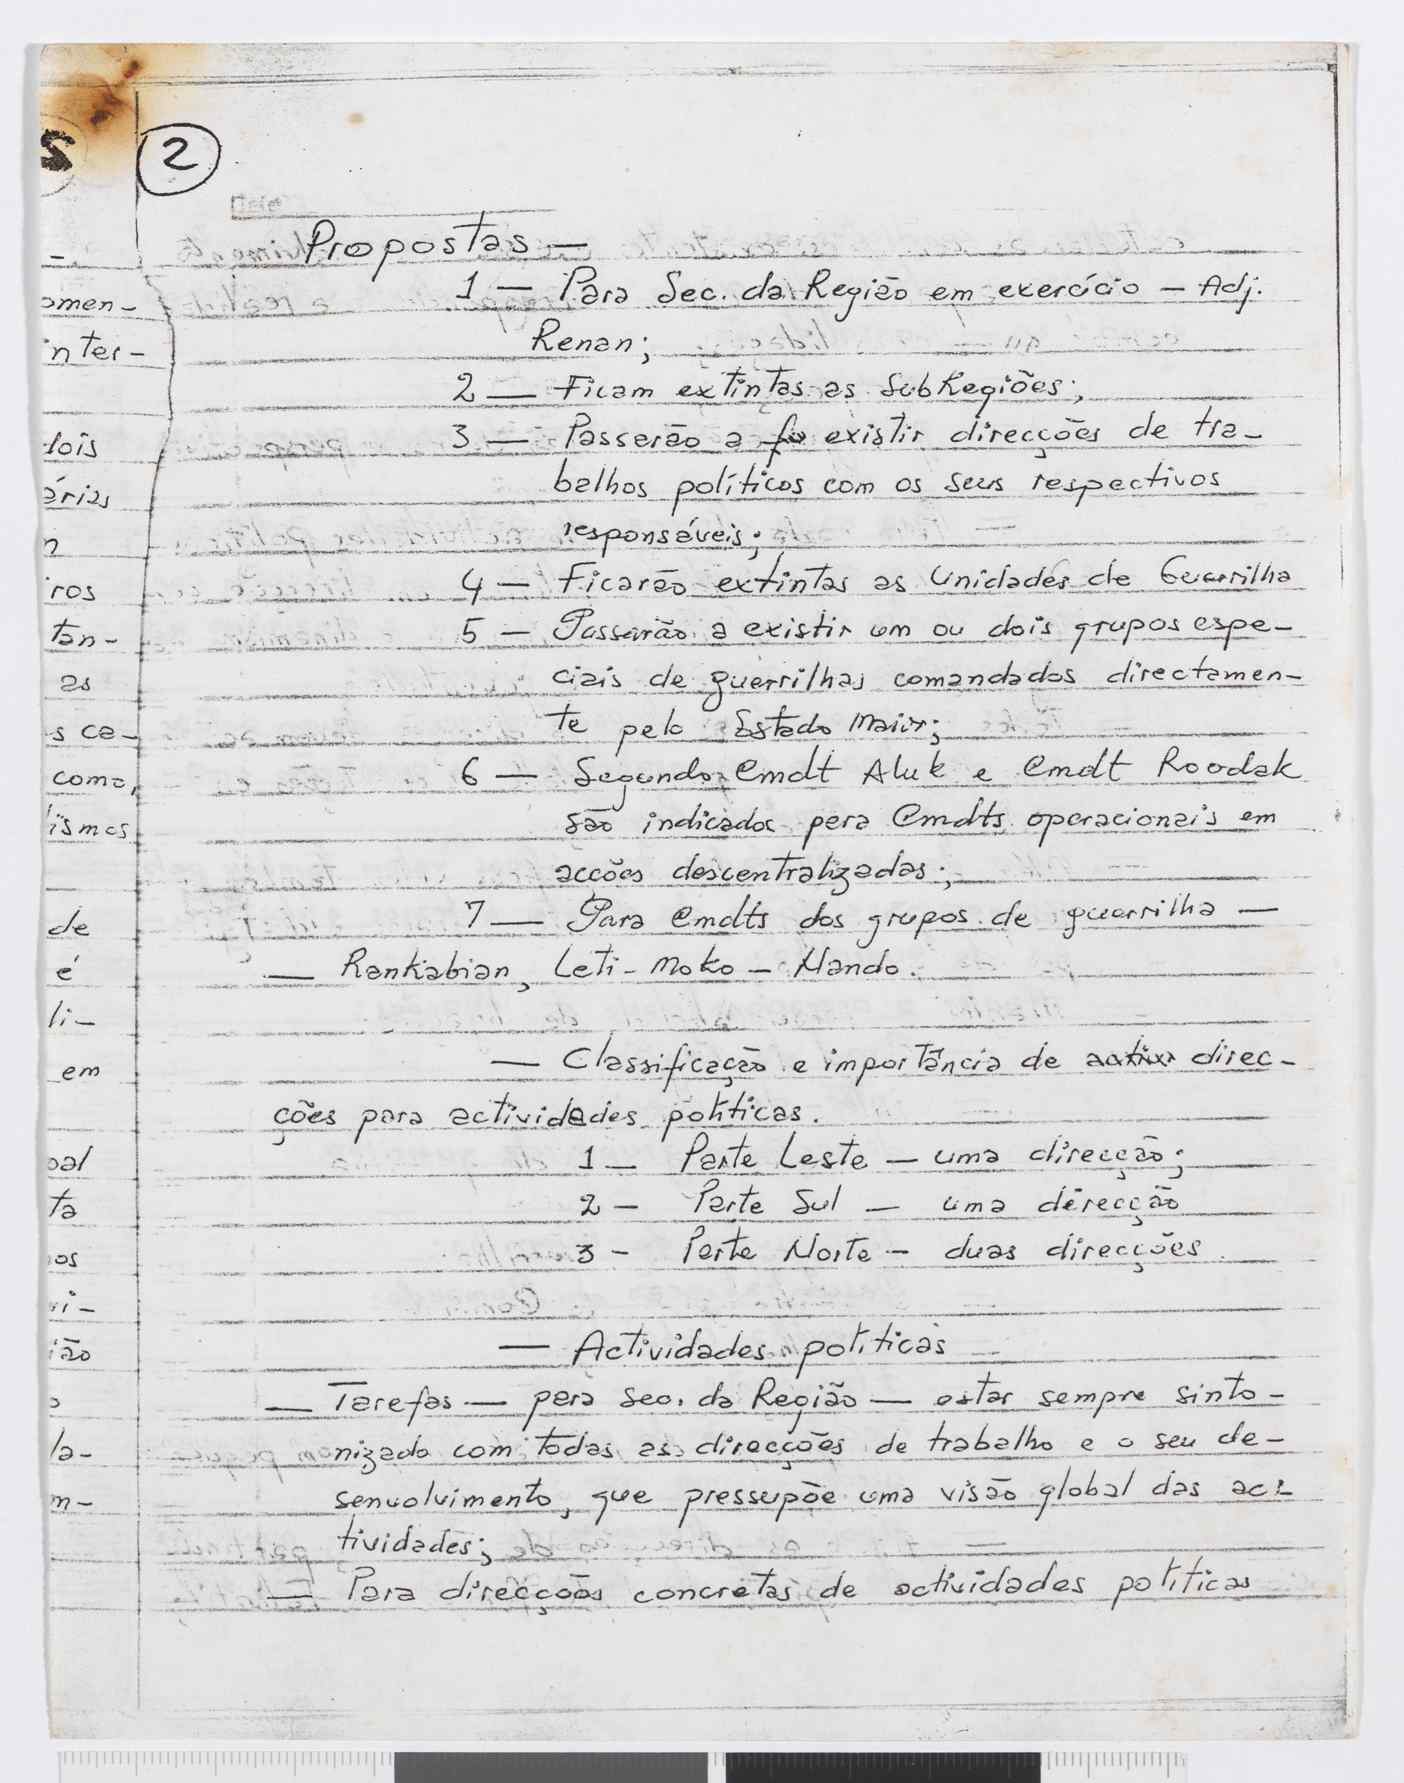 S
2
Date
Propostas —
1 — Para Sec. da Região em exercício — Adj.
Renan;
2 — Ficam extintas as SubRegiões;
3 — Passarão a existir direcções de tra-
balhos políticos com os seus respectivos
responsáveis;
4 — Ficarão extintas as Unidades de Guerrilha
5 — Passarão a existir um ou dois grupos espe-
ciais de guerrilhas comandados directamen-
te pelo Estado Maior;
6 — Segundo Cmdt Aluk e Cmdt Roodak
são indicados para Cmdts operacionais em
acções descentralizadas;
7 — Para Cmdts dos grupos de guerrilha —
— Rankabian, Leti - Moko - Nando.
— Classificação e importância de direc-
ções para actividades políticas.
1 — Parte Leste — uma direcção;
2 — Parte Sul — uma direcção
3 — Parte Norte — duas direcções
— Actividades políticas
— Tarefas — para Sec. da Região — estar sempre sinto-
nizado com todas as direcções de trabalho e o seu de-
senvolvimento, que pressupõe uma visão global das ac-
tividades;
— Para direcções concretas de actividades políticas
omen-
inter-
dois
árias
n
iros
tan-
as
s ca-
como,
ismos
de
é
li-
em
oal
ta
os
vi-
ião
o
la-
m-